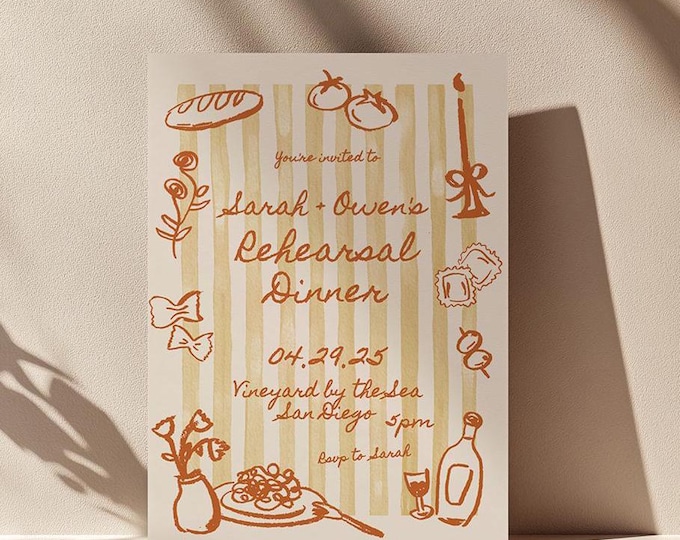 You're invited to
Sarah + Owen's
Rehearsal
Dinner
04.29.25
Vineyard by the Sea
San Diego 5pm
Rsvp to Sarah